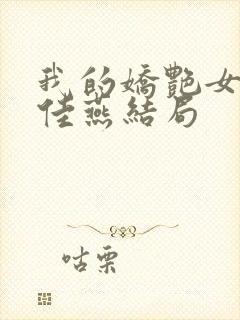 我的嬌艷女
佳燕結局
咕栗